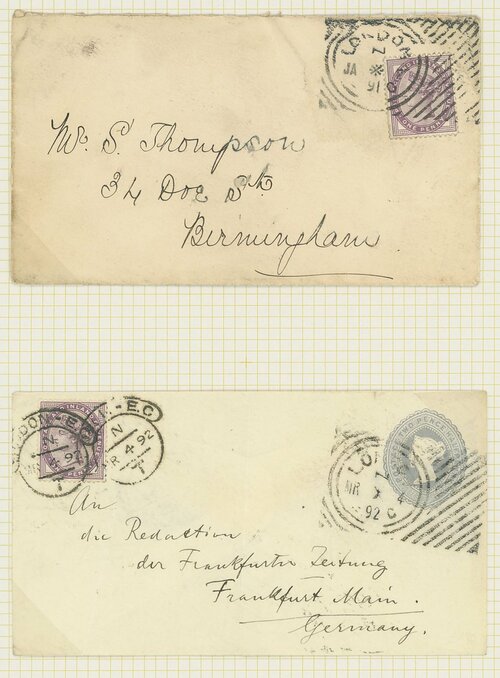 LONDON
Z
JA
91
ONE PENNY
Mr. S. Thompson
34 Doe St.
Birmingham
E.C
N
4 92
T
LO
Z
MR 4
92
An
die Redaction
der Frankfurter Zeitung
Frankfurt Main.
Germany.